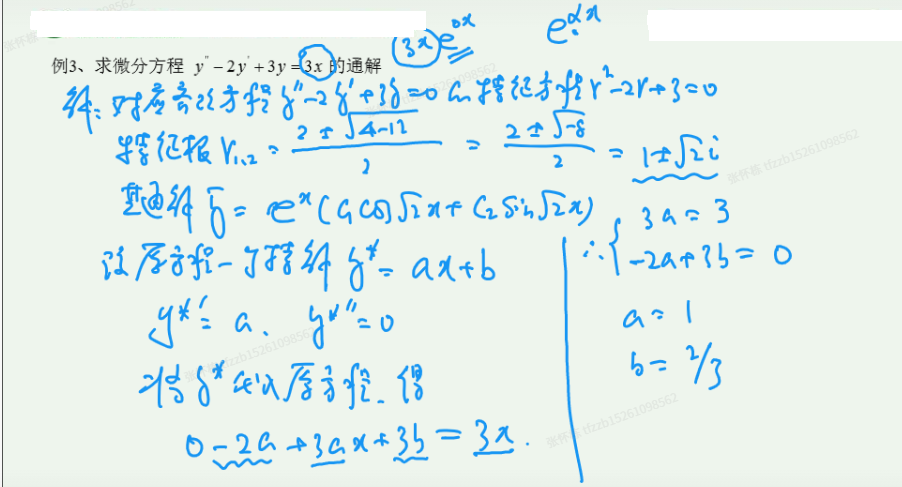 (3x)e^{0x}
e^{αx}
例3、求微分方程 y″-2y′+3y=3x 的通解
解：对应齐次方程 y″-2y′+3y=0 的特征方程 r²-2r+3=0
特征根 r₁,₂ = (2±√(4-12))/2 = (2±√-8)/2 = 1±√2 i
其通解 ȳ = eˣ(C₁cos√2x+C₂sin√2x)
设原方程一个特解 y* = ax+b
y*′= a、 y*″= 0
将 y* 代入原方程、得
0-2a+3ax+3b = 3x.
∴ { 3a = 3
-2a+3b = 0
a = 1
b = 2/3
张怀慈 tfzzb15261098562